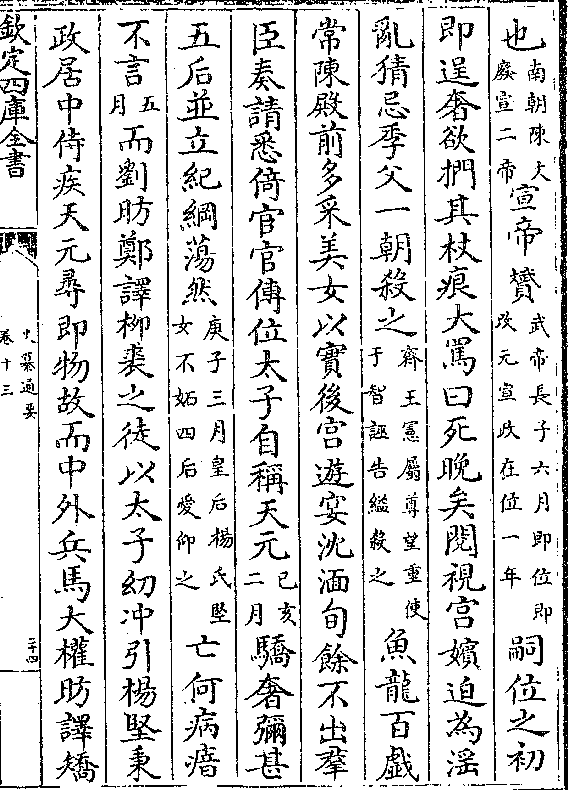 也南朝陳大廢宣二帝宣帝贇武帝長子六月即位即改元宣政在位一年嗣位之初
即逞奢欲捫其杖痕大罵曰死晚矣閱視宮嬪迫為淫
亂猜忌季父一朝殺之齊王憲屬尊望重使于智誣告縊殺之魚龍百戲
常陳殿前多采美女以實後宮遊宴沈湎旬餘不出羣
臣奏請悉倚宦官傳位太子自稱天元己亥二月驕奢彌甚
五后並立紀綱蕩然庚子三月皇后楊氏堅女不妬四后愛仰之亡何病瘖
不言五月而劉昉鄭譯柳裘之徒以太子幼冲引楊堅秉
政居中侍疾天元尋即物故而中外兵馬大權昉譯矯
欽定四庫全書
史纂通要
卷十三
二十四